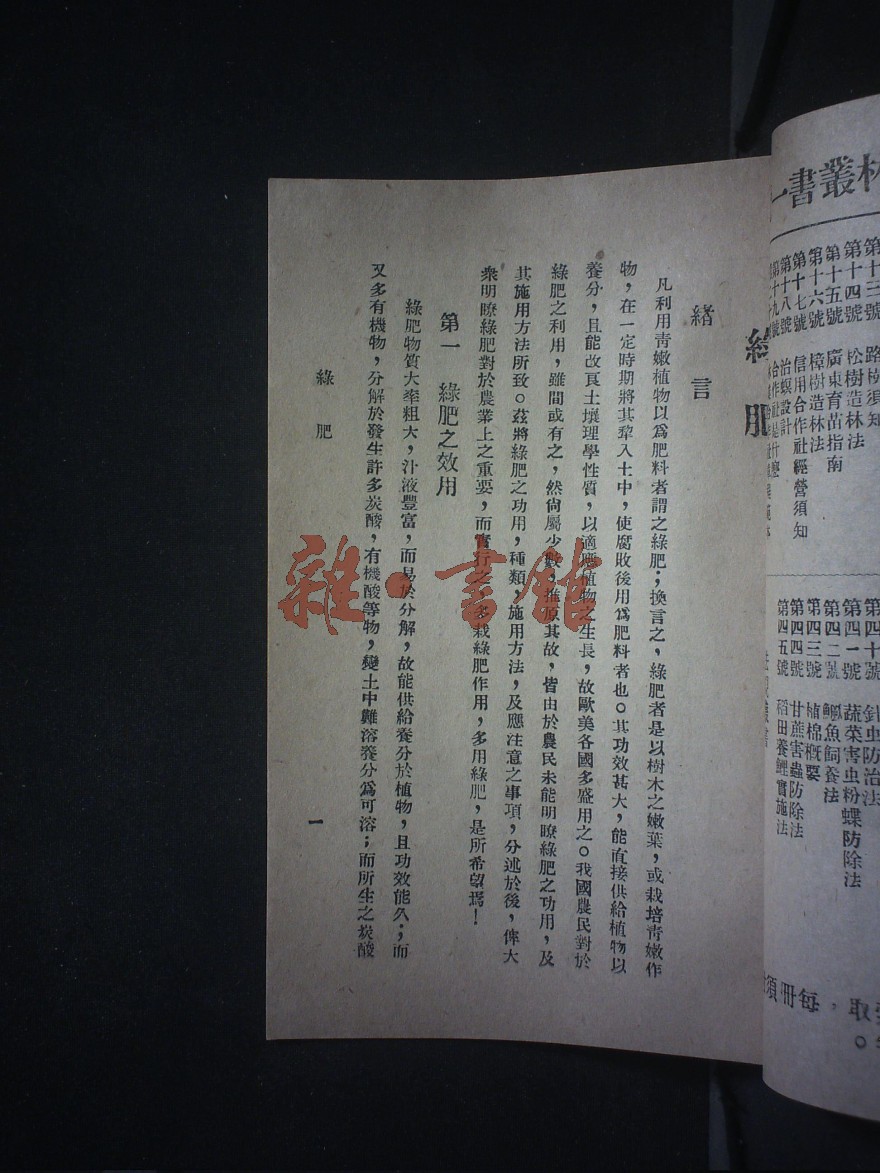 林叢書一
第十三號 路樹須知
第十四號 松樹造林法
第十五號 廣東育苗指南
第十六號 樟樹造林法
第十七號 信用合作社經營須知
第十八號 治螟設計
第四十號 針虫防治法
第四一號 蔬菜害虫粉蝶防除法
第四二號 鯇魚飼養法
第四三號 植棉概要
第四四號 甘蔗害蟲防除法
第四五號 稻田養鯉實施法
取,每冊須
綠肥
緒言
凡利用青嫩植物以爲肥料者謂之綠肥;換言之,綠肥者是以樹木之嫩葉,或栽培青嫩作
物,在一定時期將其犂入土中,使腐敗後用爲肥料者也。其功效甚大,能直接供給植物以
養分,且能改良土壤理學性質,以適應植物之生長,故歐美各國多盛用之。我國農民對於
綠肥之利用,雖間或有之,然尙屬少數,推原其故,皆由於農民未能明瞭綠肥之功用,及
其施用方法所致。茲將綠肥之功用,種類,施用方法,及應注意之事項,分述於後,俾大
衆明瞭綠肥對於農業上之重要,而實行之,多栽綠肥作用,多用綠肥,是所希望焉!
第一 綠肥之效用
綠肥物質大率粗大,汁液豐富,而易於分解,故能供給養分於植物,且功效能久;而
又多有機物,分解於發生許多炭酸,有機酸等物,變土中難溶養分爲可溶;而所生之炭酸
綠肥
一
雜·書館